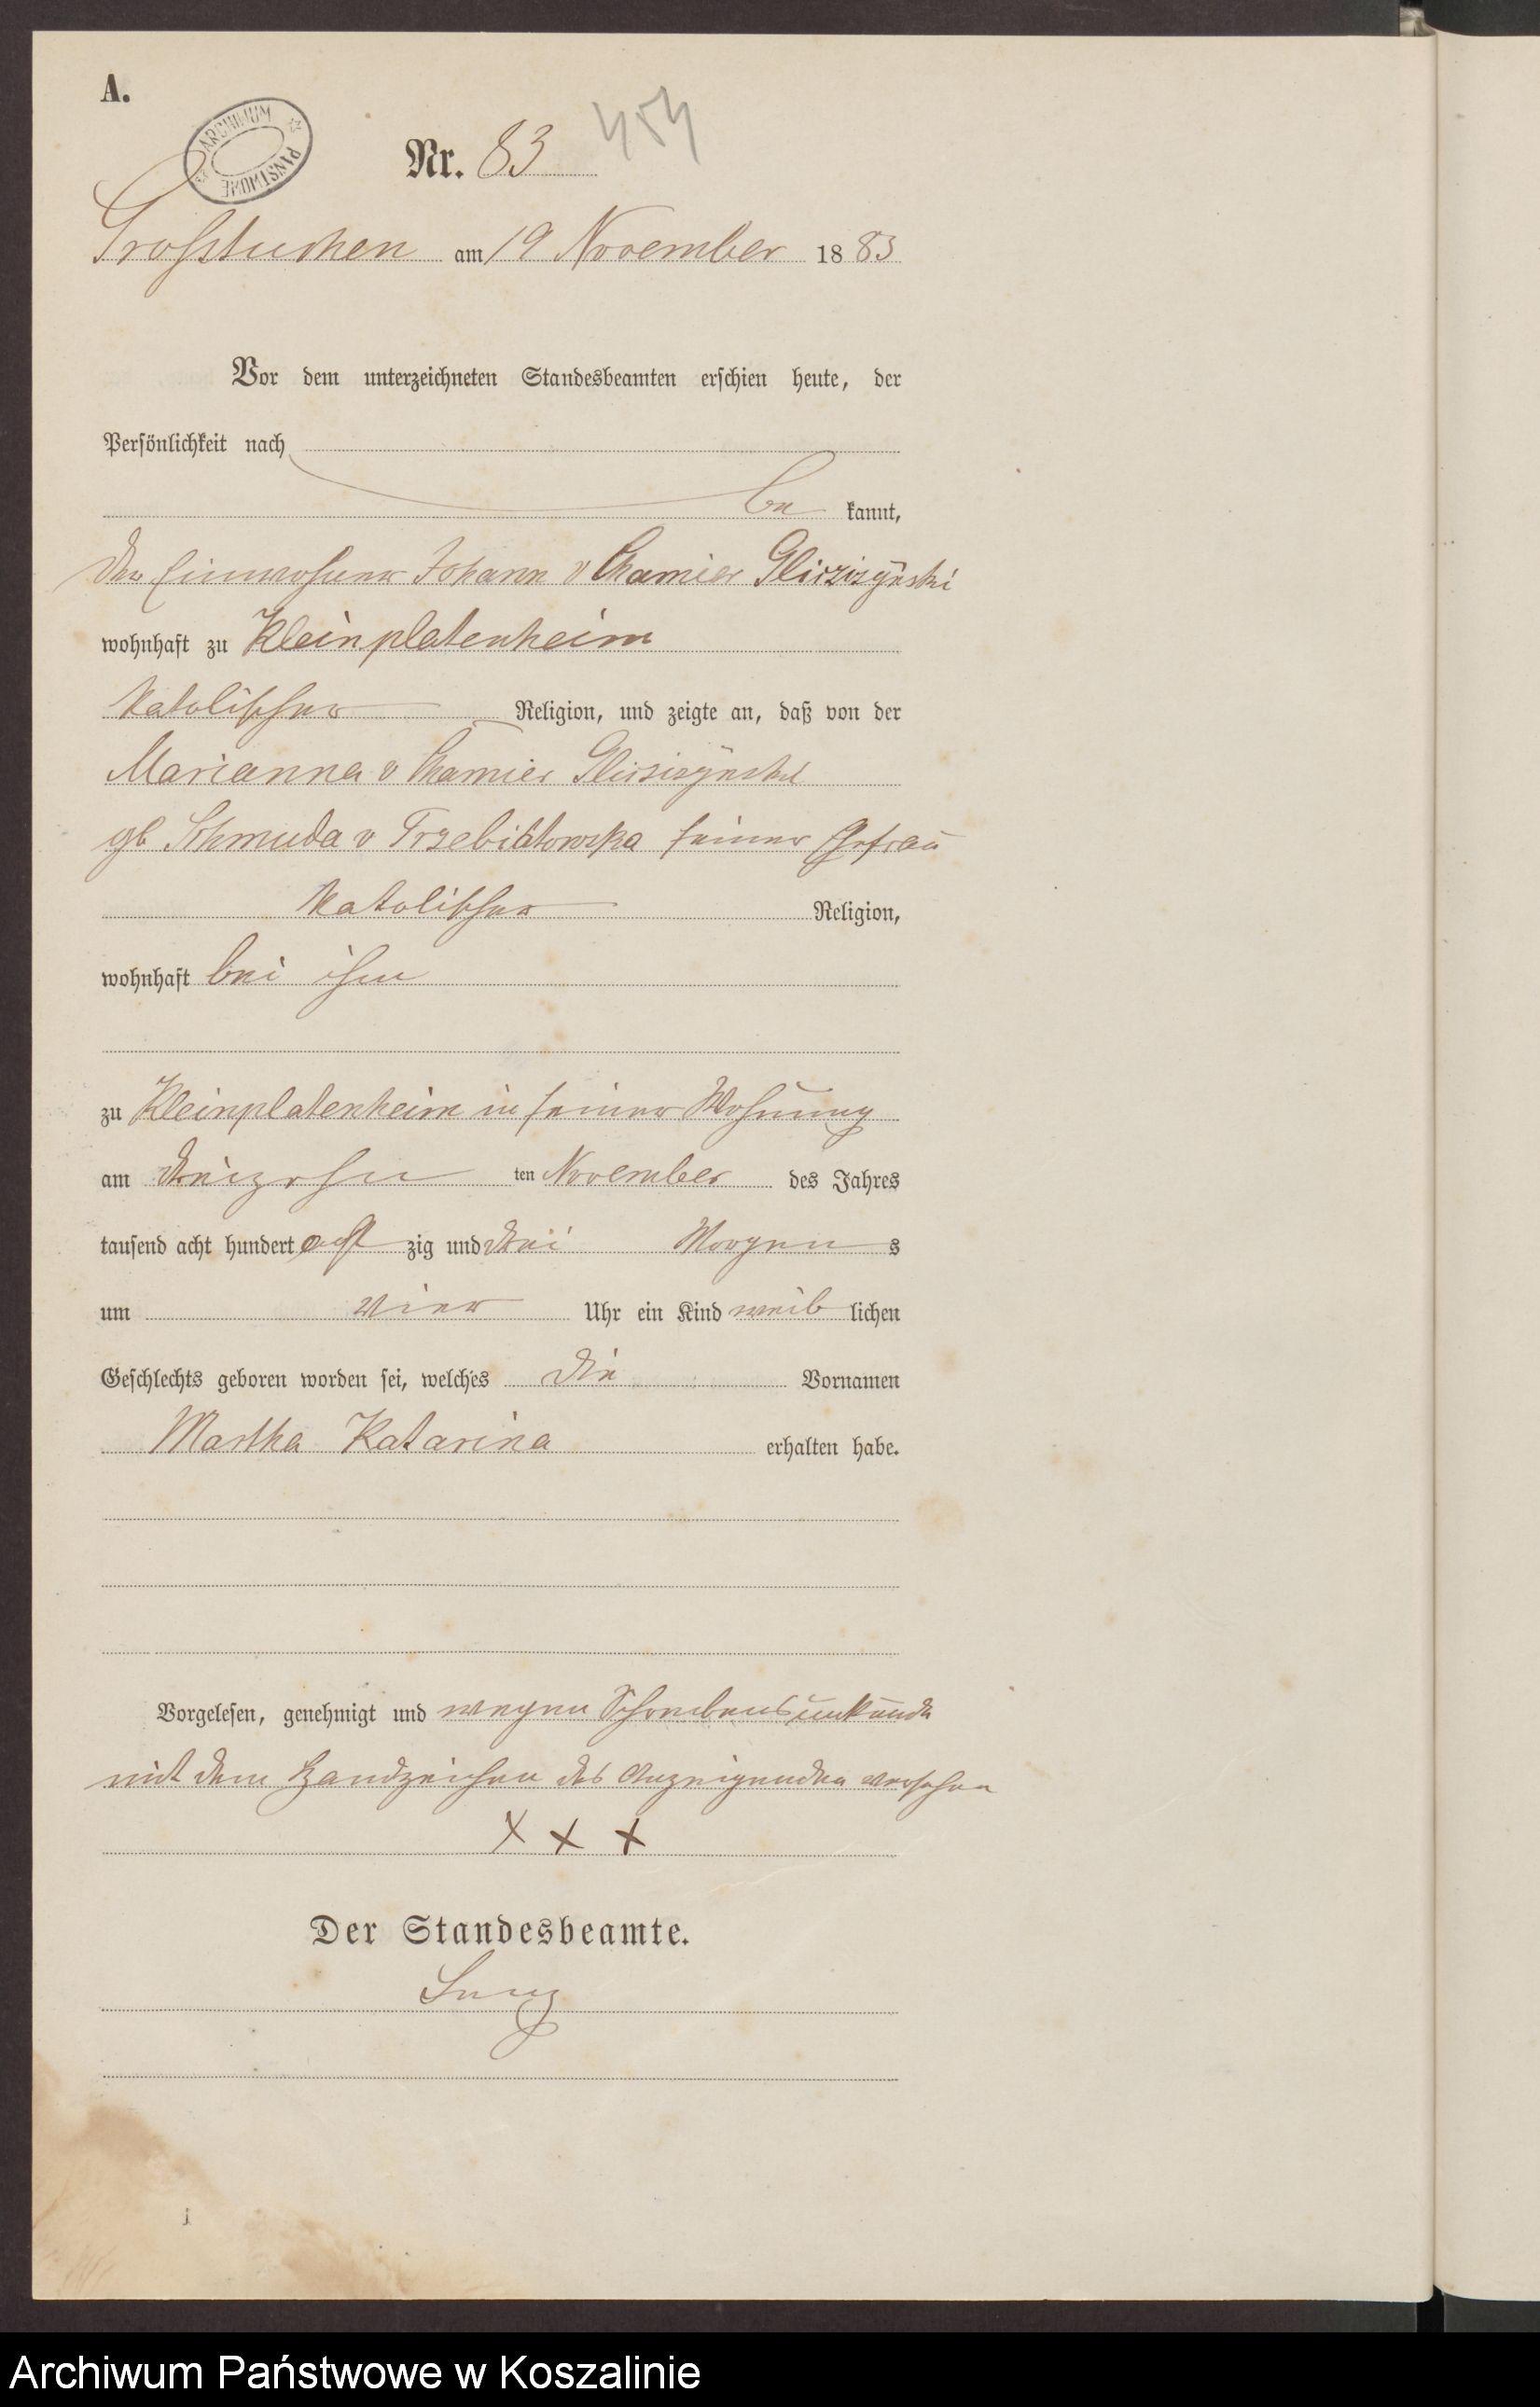 A.
ARCHIWUM PAŃSTWOWE
Nr. 83 454
Großtuchen am 19 November 1883
Vor dem unterzeichneten Standesbeamten erschien heute, der
Persönlichkeit nach
be kannt,
der Einwohner Johann v Chamier Gliszizynski
wohnhaft zu Kleinplatenheim
katolischer Religion, und zeigte an, daß von der
Marianna v Chamier
gb Schmuda v Trzebiatowska seiner Ehefrau
katolischer Religion,
wohnhaft bei ihm
zu Kleinplatenheim in seiner Wohnung
am dreizehn ten November des Jahres
tausend acht hundert acht zig und drei Morgen s
um vier Uhr ein Kind weib lichen
Geschlechts geboren worden sei, welches die Vornamen
Martha Katarina erhalten habe.
Vorgelesen, genehmigt und wegen Schreibensunkunde
mit dem Handzeichen des Anzeigenden versehen
X X X
Der Standesbeamte.
Archiwum Państwowe w Koszalinie